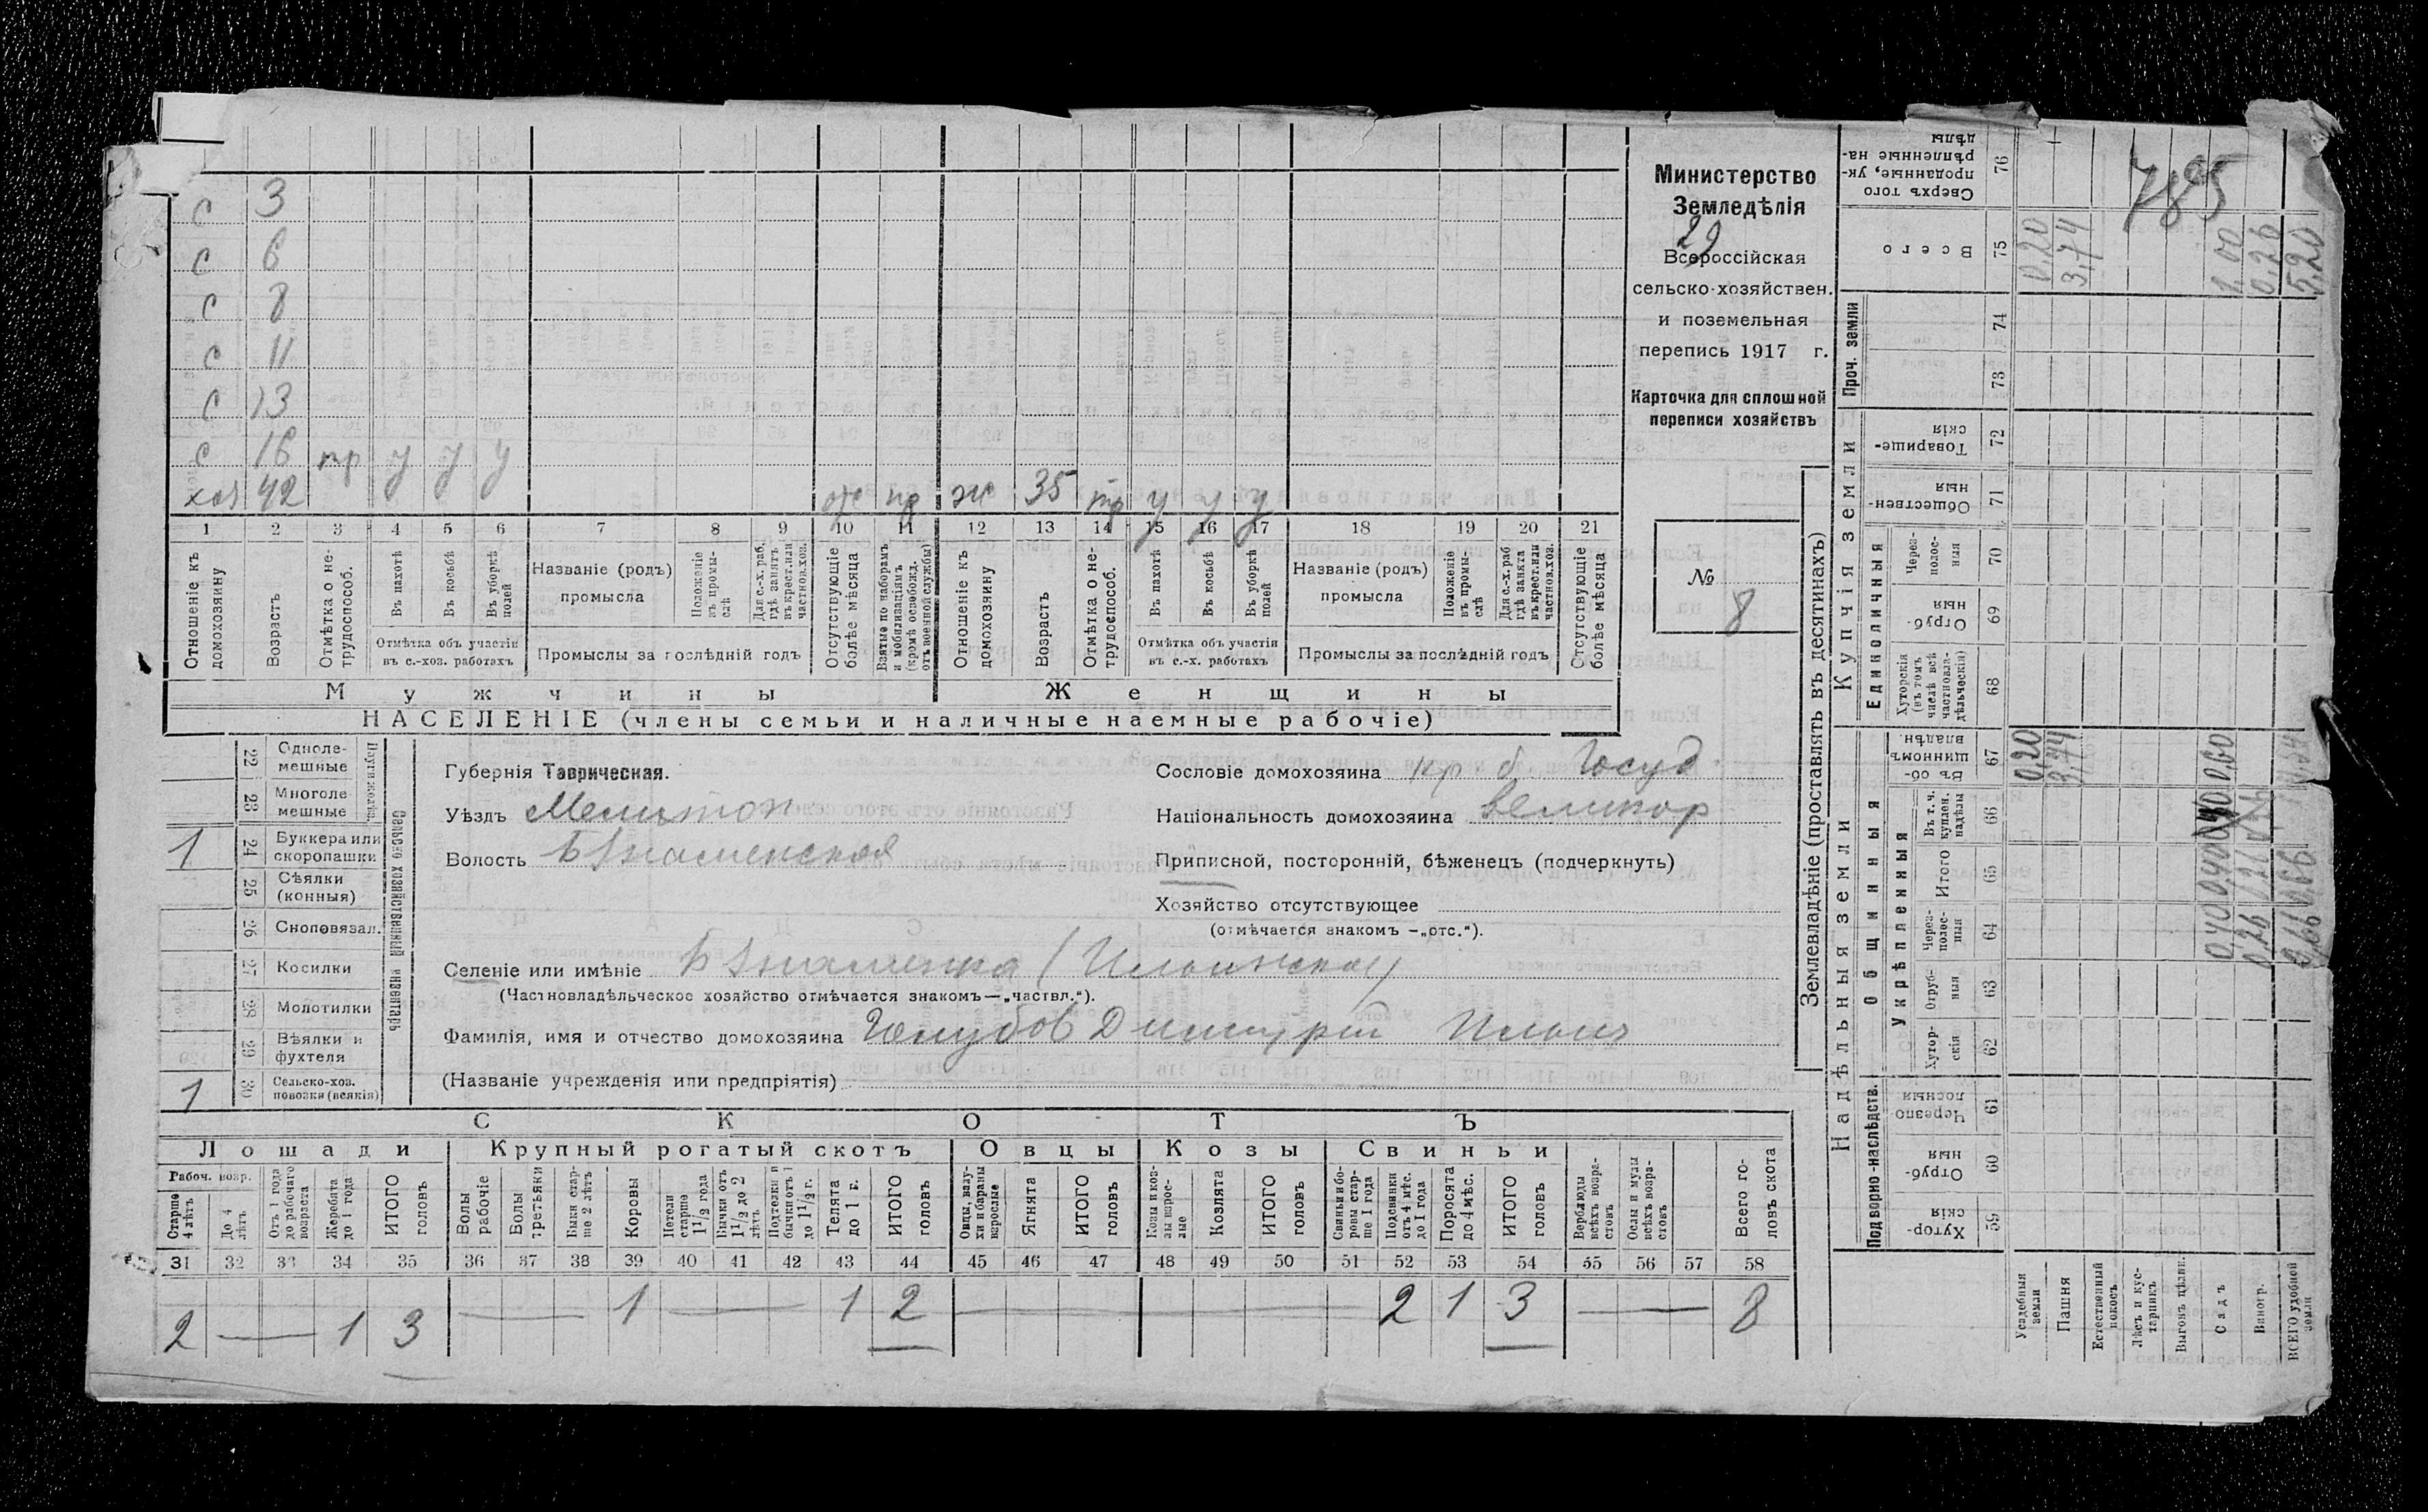 с 3
с 6
с 8
с 11
с 13
с 16 тр у у у
хоз 42 от пр ж 35 тр у у у
1 2 3 4 5 6 7 8 9 10 11 12 13 14 15 16 17 18 19 20 21
Отношеніе къ домохозяину
Возрастъ
Отмѣтка о не-трудоспособ.
Въ пахотѣ
Въ косьбѣ
Въ уборкѣ полей
Отмѣтка объ участіи
въ с.-хоз. работахъ
Названіе (родъ)
промысла
Положеніе въ промы-слѣ
Для с.-х. раб. гдѣ занятъ въ крест. или частнов. хоз.
Промыслы за послѣдній годъ
Отсутствующіе болѣе мѣсяца
Взятые по наборамъ и мобилизаціямъ (кромѣ освобожд. отъ военной службы)
Отношеніе къ домохозяину
Возрастъ
Отмѣтка о не-трудоспособ.
Въ пахотѣ
Въ косьбѣ
Въ уборкѣ полей
Отмѣтка объ участіи
въ с.-х. работахъ
Названіе (родъ)
промысла
Положеніе въ промы-слѣ
Для с.-х. раб гдѣ занята въ крест. или частнов. хоз.
Промыслы за послѣдній годъ
Отсутствующіе болѣе мѣсяца
Мужчины Женщины
НАСЕЛЕНІЕ (члены семьи и наличные наемные рабочіе)
Министерство
Земледѣлія
29
Всероссійская
сельско-хозяйствен.
и поземельная
перепись 1917 г.
Карточка для сплошной
переписи хозяйствъ
№
8
Сельско хозяйственный инвентарь
22 Однолемешные
23 Многолемешные
1 24 Буккера или скоропашки
25 Сѣялки (конныя)
26 Сноповязал.
27 Косилки
28 Молотилки
29 Вѣялки и фухтеля
1 30 Сельско-хоз. повозки (всякія)
Губернія Таврическая.
Уѣздъ Мелитоп
Волость Б Знаменская
Сословіе домохозяина кр. б. Госуд.
Національность домохозяина великор
Приписной, посторонній, бѣженецъ (подчеркнуть)
Хозяйство отсутствующее
(отмѣчается знакомъ —„отс.“).
Селеніе или имѣніе Б Знаменка (Ильинская)
(Частновладѣльческое хозяйство отмѣчается знакомъ—„частвл.“).
Фамилія, имя и отчество домохозяина Голубов Дмитрій Ильич
(Названіе учрежденія или предпріятія)
СКОТЪ
Лошади Крупный рогатый скотъ Овцы Козы Свиньи
Рабоч. возр.
Старше 4 лѣтъ
До 4 лѣтъ
Отъ 1 года до рабочаго возраста
Жеребята до 1 года
ИТОГО головъ
Волы рабочіе
Волы третьяки
Быки стар-ше 2 лѣтъ
Коровы
Нетели старше 1 1/2 года
Бычки отъ 1 1/2 до 2 лѣтъ
Подтелки и бычки отъ 1 до 1 1/2 г.
Телята до 1 г.
ИТОГО головъ
Овцы, валу-хи и бараны взрослые
Ягнята
ИТОГО головъ
Козы и коз-лы взрос-лые
Козлята
ИТОГО головъ
Свиньи и бо-ровы стар-ше 1 года
Подсвинки отъ 4 мѣс. до 1 года
Поросята до 4 мѣс.
ИТОГО головъ
Верблюды всѣхъ возра-стовъ
Ослы и мулы всѣхъ возра-стовъ
Всего го-ловъ скота
31 32 33 34 35 36 37 38 39 40 41 42 43 44 45 46 47 48 49 50 51 52 53 54 55 56 57 58
2 — 1 3 — 1 — 1 2 — 2 1 3 — 8
Землевладѣніе (проставлять въ десятинахъ)
Надѣльныя земли Купчія земли Проч. земли
Подворно-наслѣдств. Общинныя Единоличныя
Укрѣпленныя
Хутор-скія 59
Отруб-ныя 60
Черезпо лосныя 61
Хутор-скія 62
Отруб-ныя 63
Черезполос-ныя 64
Итого 65
Въ т. ч. куплен. надѣлы 66
Въ об-щинномъ владѣн. 67
Хуторскія (въ томъ числѣ всѣ частновла-дѣльческія) 68
Отруб-ныя 69
Через-полос-ныя 70
Обществен-ныя 71
Товарище-скія 72
73
74
Всего 75
Сверхъ того проданные, ук-рѣпленные на-дѣлы 76
Усадебныя земли 0,20 0,20
Пашня 3,74 3,74
Естественный покосъ
Лѣсъ и кус-тарникъ
Выгонъ цѣлин.
Садъ 0,40 0,40 0,60 1,00
Виногр. 0,26 0,26
ВСЕГО удобной земли 0,66 0,66 5,20
785